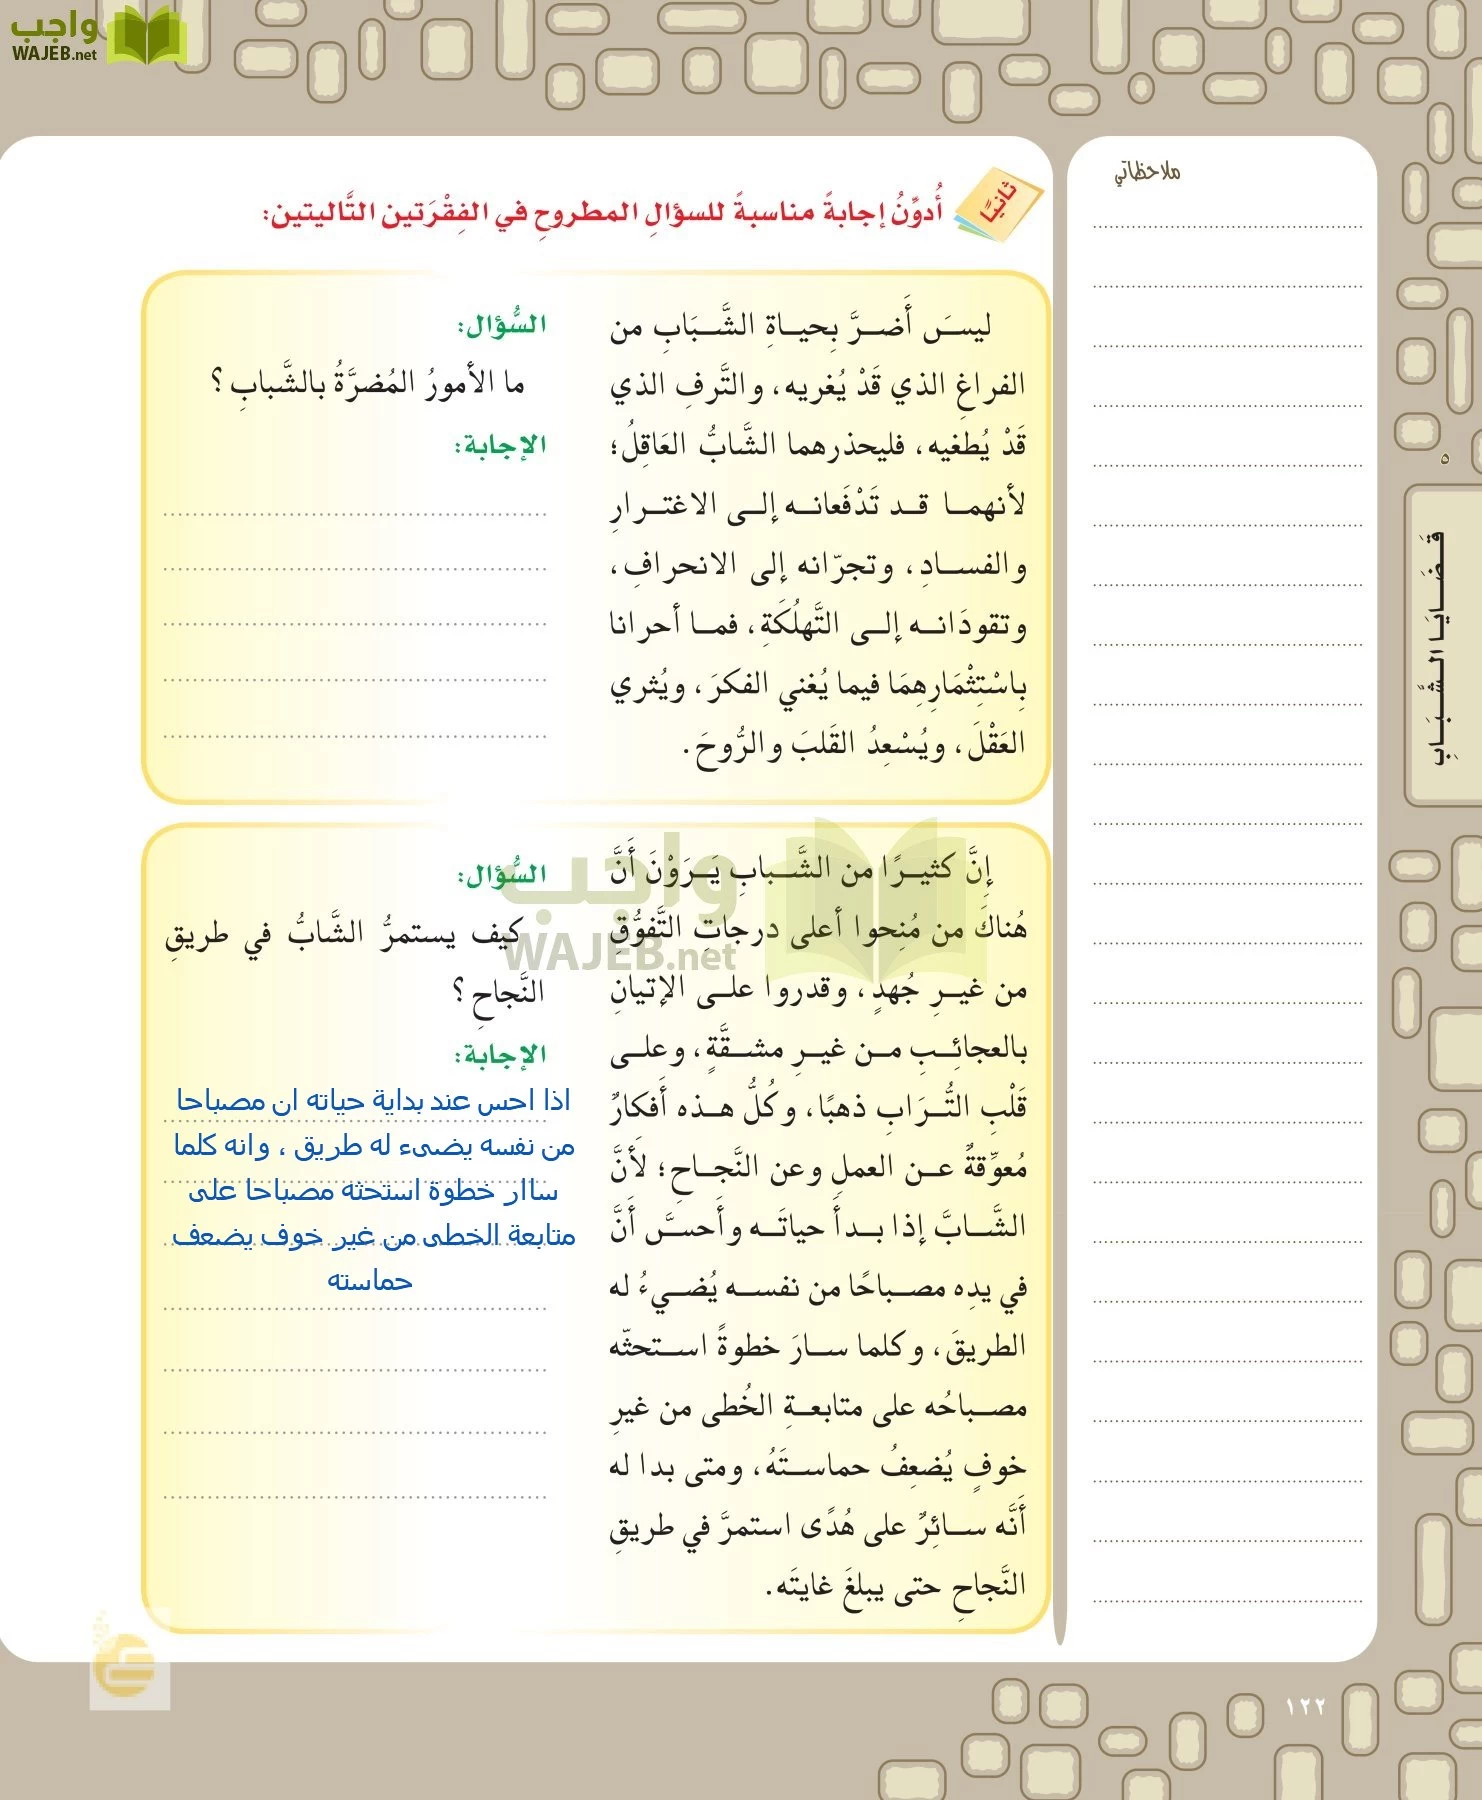 واجب
WAJEB.net
ملاحظاتي
ثانيًا
أُدوِّنُ إجابةً مناسبةً للسؤالِ المطروحِ في الفِقْرَتين التَّاليتين:
ليسَ أَضرَّ بِحياةِ الشَّبَابِ من
الفراغِ الذي قَدْ يُغريه، والتَّرفِ الذي
قَدْ يُطغيه، فليحذرهما الشَّابُّ العَاقِلُ؛
لأنهما قد تَدْفَعانه إلى الاغترارِ
والفسادِ، وتجرّانه إلى الانحرافِ،
وتقودَانه إلى التَّهلُكَةِ، فما أحرانا
بِاسْتِثْمَارِهِمَا فيما يُغني الفكرَ، ويُثري
العَقْلَ، ويُسْعِدُ القَلبَ والرُّوحَ.
السُّؤال:
ما الأمورُ المُضرَّةُ بالشَّبابِ؟
الإجابة:
إِنَّ كثيرًا من الشَّبابِ يَرَوْنَ أَنَّ
هُناكَ من مُنِحوا أعلى درجاتِ التَّفوُّقِ
من غيرِ جُهدٍ، وقدروا على الإتيانِ
بالعجائِبِ من غيرِ مشقَّةٍ، وعلى
قَلْبِ التُّرَابِ ذهبًا، وكُلُّ هذه أَفكارٌ
مُعوِّقةٌ عن العملِ وعن النَّجاحِ؛ لأَنَّ
الشَّابَّ إذا بدأَ حياتَه وأَحسَّ أَنَّ
في يدِه مصباحًا من نفسه يُضيءُ له
الطريقَ، وكلما سارَ خطوةً استحثّه
مصباحُه على متابعةِ الخُطى من غيرِ
خوفٍ يُضعِفُ حماستَهُ، ومتى بدا له
أَنَّه سائِرٌ على هُدًى استمرَّ في طريقِ
النَّجاحِ حتى يبلغَ غايتَه.
السُّؤال:
كيف يستمرُّ الشَّابُّ في طريقِ
النَّجاحِ؟
الإجابة:
اذا احس عند بداية حياته ان مصباحا
من نفسه يضىء له طريق ، وانه كلما
ساار خطوة استحثه مصباحا على
متابعة الخطى من غير خوف يضعف
حماسته
واجب
WAJEB.net
٥
قَضَايَا الشَّبَابِ
١٢٢